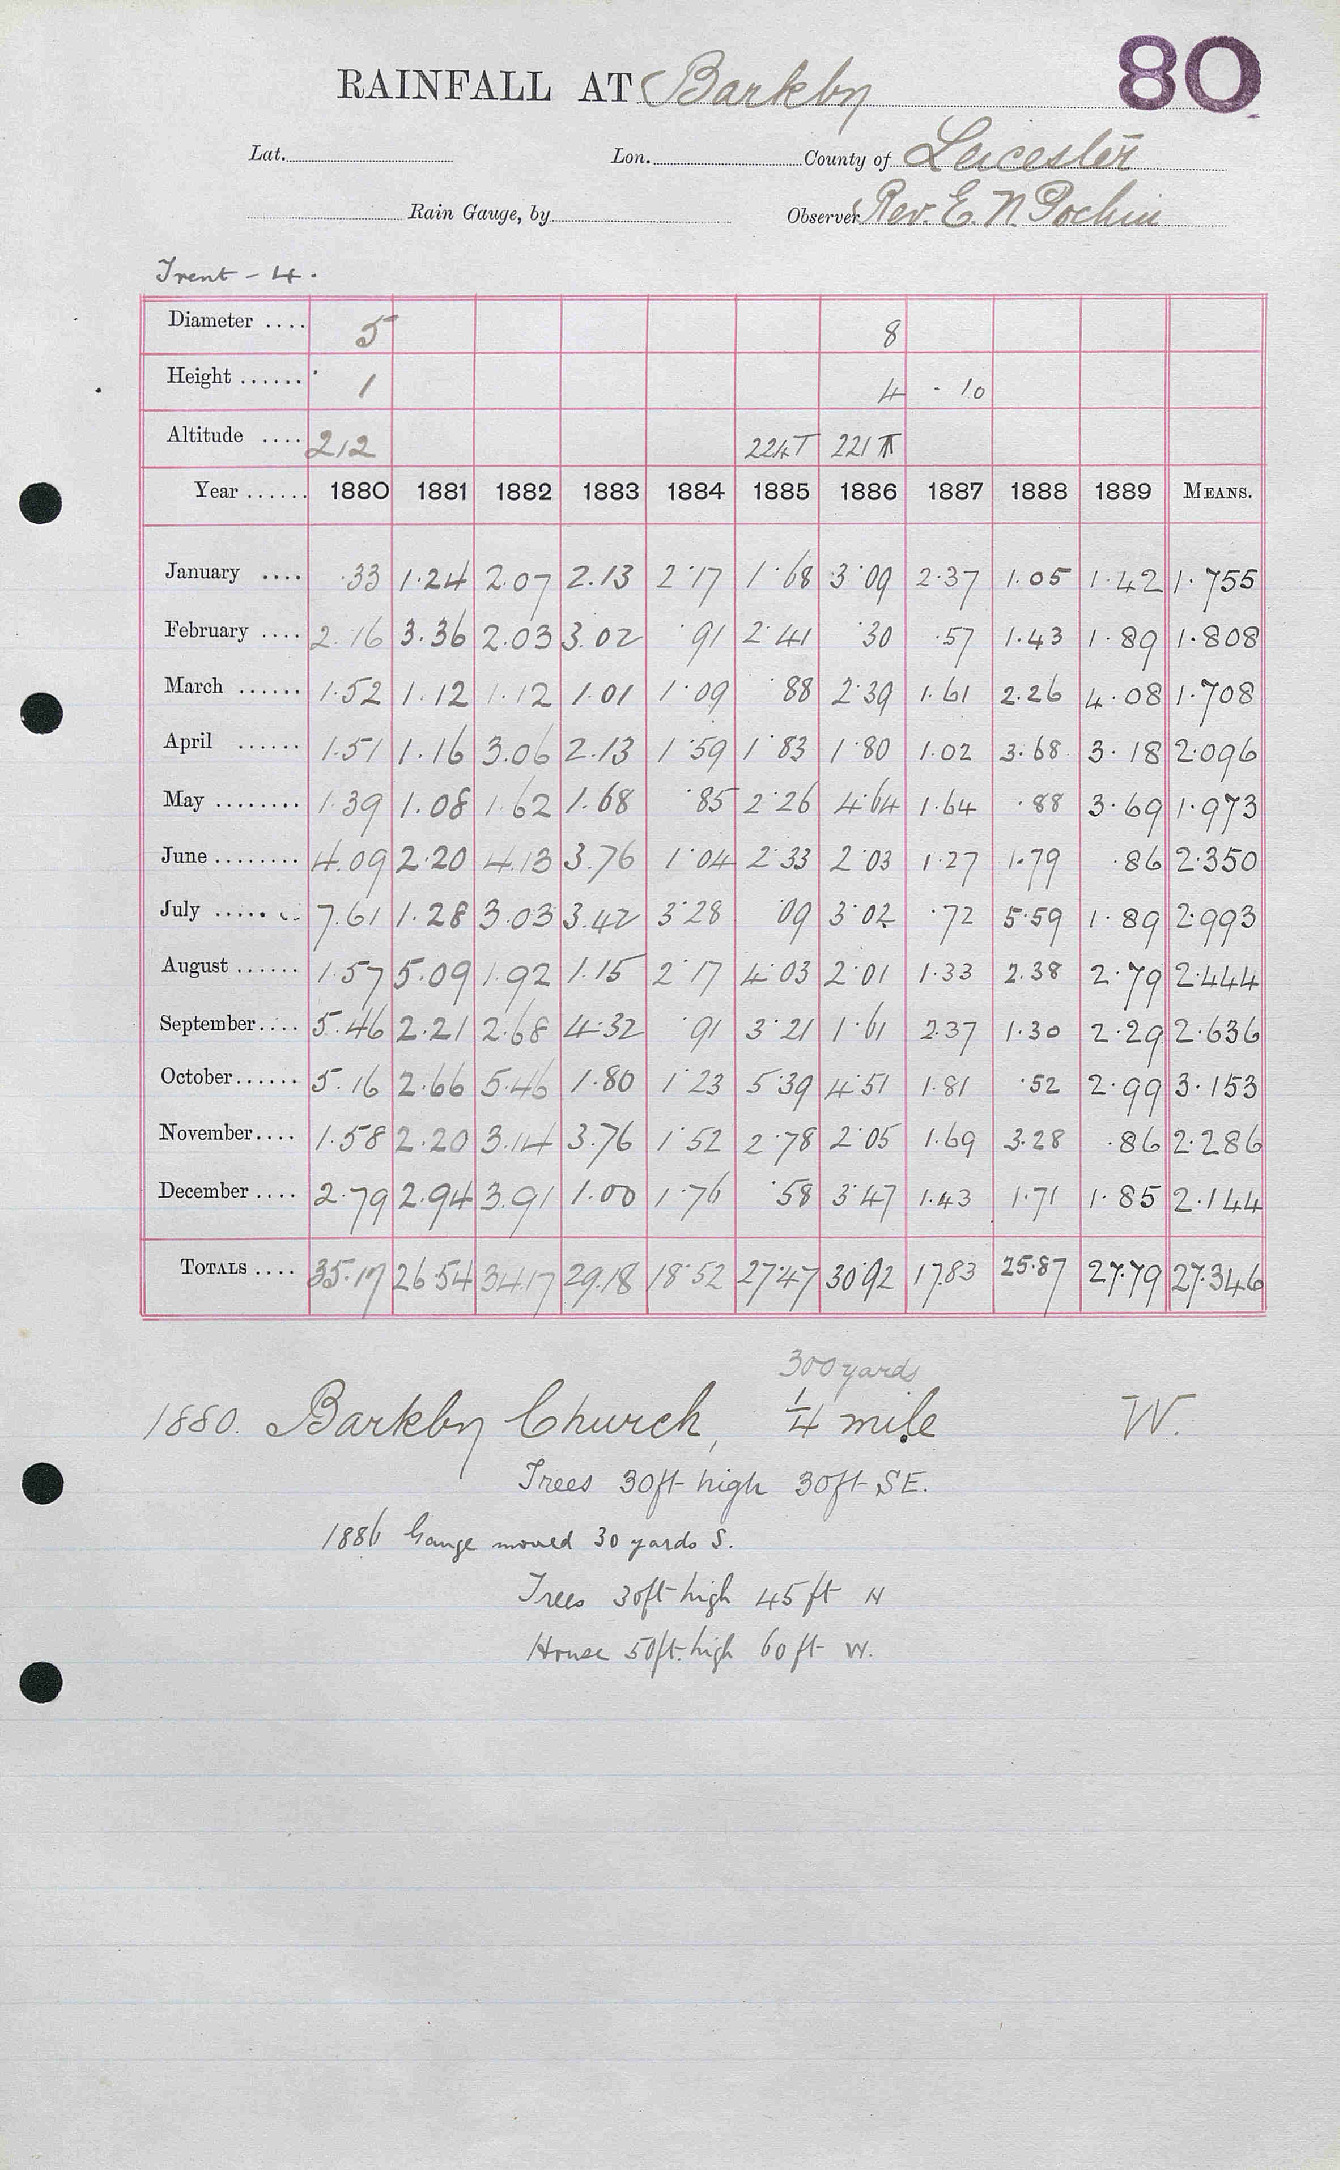 80
RAINFALL AT Barkby
Lat. Lon. County of Leicester
Rain Gauge, by Observer Rev. E. N Pochin
Trent - 4.
Diameter .... 5 8
Height ...... 1 4 · 10
Altitude .... 212 224T 221T
Year ...... 1880 1881 1882 1883 1884 1885 1886 1887 1888 1889 MEANS.
January .... .33 1.24 2.07 2.13 2.17 1.68 3.09 2.37 1.05 1.42 1.755
February .... 2.16 3.36 2.03 3.02 .91 2.41 .30 .57 1.43 1.89 1.808
March ...... 1.52 1.12 1.12 1.01 1.09 .88 2.39 1.61 2.26 4.08 1.708
April ...... 1.51 1.16 3.06 2.13 1.59 1.83 1.80 1.02 3.68 3.18 2.096
May ........ 1.39 1.08 1.62 1.68 .85 2.26 4.64 1.64 .88 3.69 1.973
June ........ 4.09 2.20 4.13 3.76 1.04 2.33 2.03 1.27 1.79 .86 2.350
July ..... 7.61 1.28 3.03 3.42 3.28 .09 3.02 .72 5.59 1.89 2.993
August ...... 1.57 5.09 1.92 1.15 2.17 4.03 2.01 1.33 2.38 2.79 2.444
September.... 5.46 2.21 2.68 4.32 .91 3.21 1.61 2.37 1.30 2.29 2.636
October...... 5.16 2.66 5.46 1.80 1.23 5.39 4.51 1.81 .52 2.99 3.153
November.... 1.58 2.20 3.14 3.76 1.52 2.78 2.05 1.69 3.28 .86 2.286
December .... 2.79 2.94 3.91 1.00 1.76 .58 3.47 1.43 1.71 1.85 2.144
TOTALS .... 35.17 26.54 34.17 29.18 18.52 27.47 30.92 17.83 25.87 27.79 27.346
300 yards
1880. Barkby Church, 1/4 mile W.
Trees 30ft high 30ft SE.
1886 Gauge moved 30 yards S.
Trees 30ft high 45ft N
House 50ft. high 60ft W.